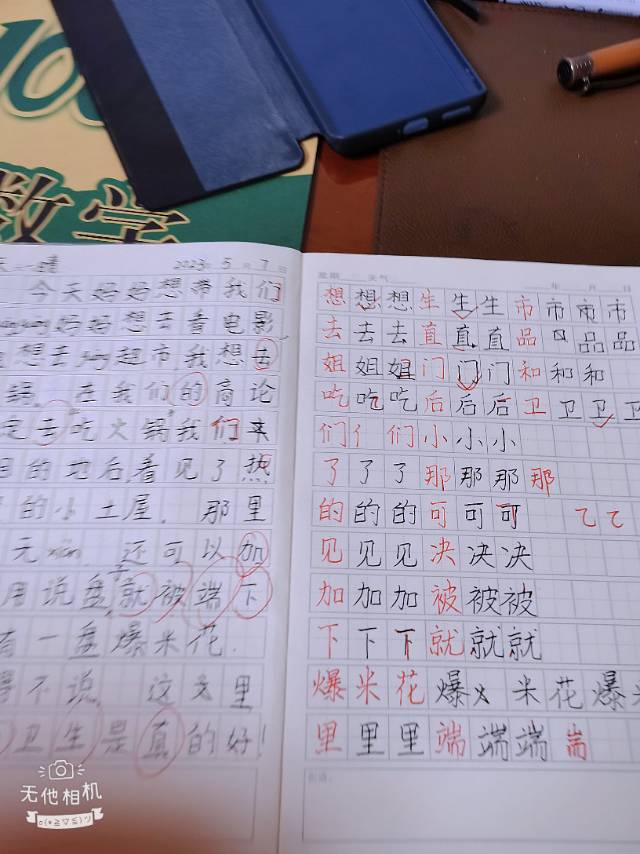 10
数字
2023年 5月 7日
今天好好想带我们
好好想去看电影
想去 起市,我想去
锅。在我们的商论
定去吃火锅我们来
的地后,看见了热
的小土屋。那里
无xiàn,还可以加
用说盘子,就被端下
有一盘爆米花.
不说。这里
卫生是真的好!
星期 天气 年 月 日
想想想生生生市市市市
去去去直直直品口品品
姐姐姐门门门和和和
吃吃吃后后后卫卫卫卫
们亻们小小小
了了了那那那那
的的的可可可 て て
见见见决决决
加加加被被被
下下下就就就
爆米花爆米花爆米
里里里端端端耑
无他相机